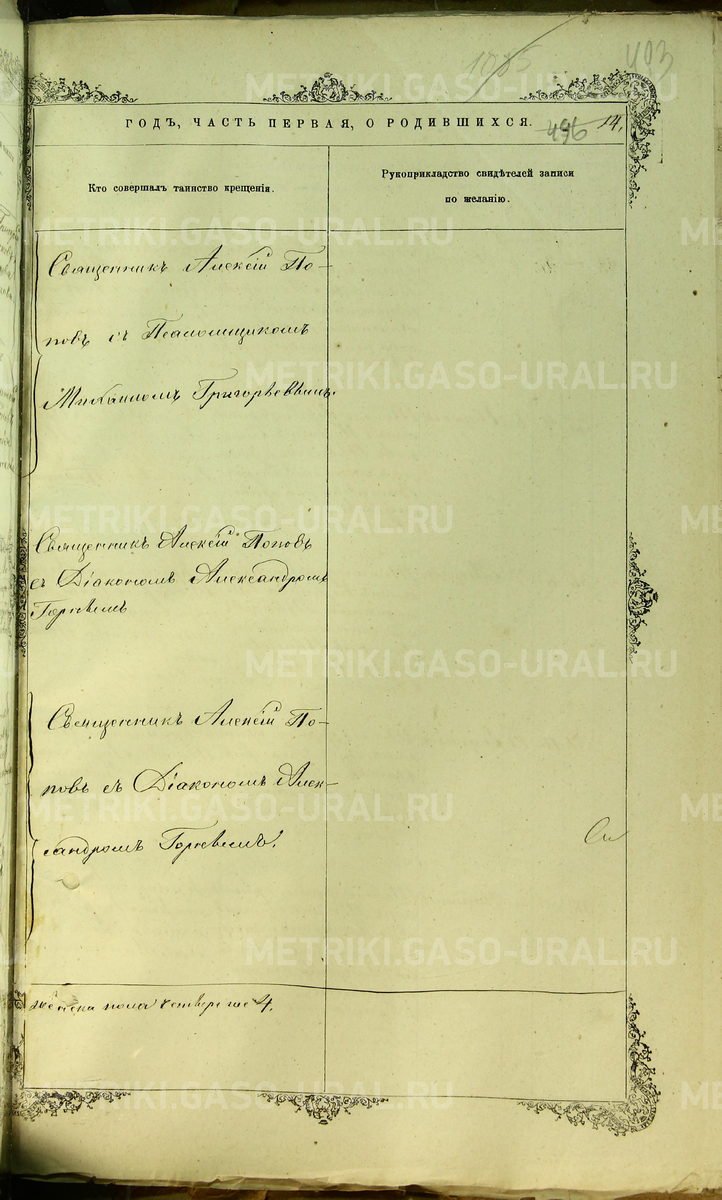 1085
403
ГОДЪ, ЧАСТЬ ПЕРВАЯ, О РОДИВШИХСЯ.
496 14,
Кто совершалъ таинство крещенія.
Рукоприкладство свидѣтелей записи
по желанію.
Священникъ Алексій По-
повъ съ Псаломщикомъ
Михаиломъ Григорьевымъ.
Священникъ Алексій Поповъ
съ Діакономъ Александромъ
Священникъ Алексій По-
повъ съ Діакономъ Алек-
сандромъ
женска пола четверо 4.
METRIKI.GASO-URAL.RU